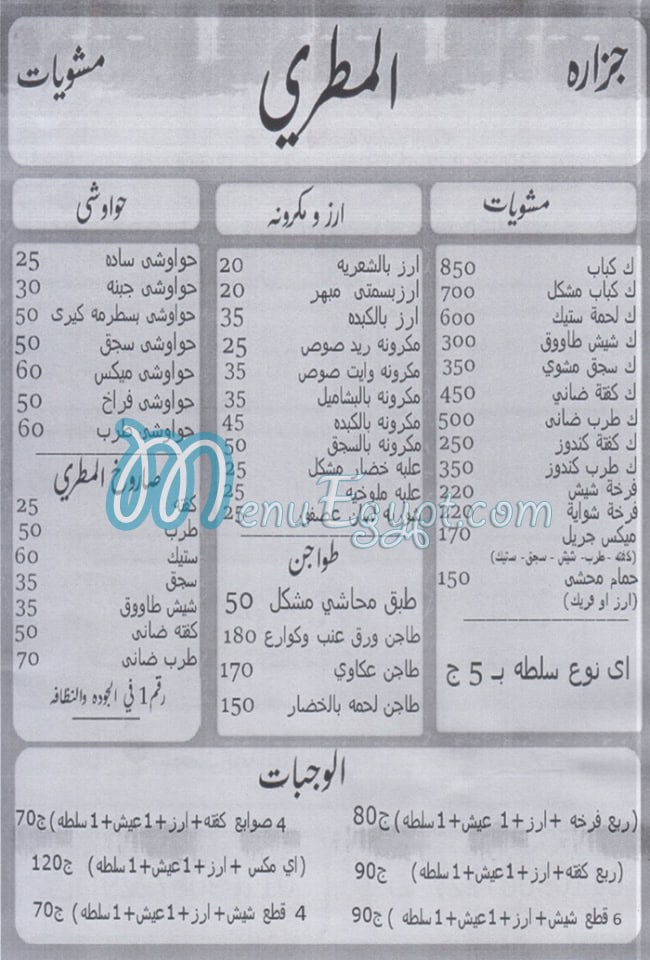 جزاره
المطري
مشويات
مشويات
ك كباب 850
ك كباب مشكل 700
ك لحمة ستيك 600
ك شيش طاووق 300
ك سجق مشوي 350
ك كفتة ضاني 450
ك طرب ضانى 500
ك كفتة كندوز 250
ك طرب كندوز 350
فرخة شيش 220
فرخة شواية 220
ميكس جريل 170
(كفته - طرب- شيش - سجق- ستيك)
حمام محشي 150
(ارز او فريك)
اى نوع سلطه بـ 5 ج
ارز و مكرونه
ارز بالشعريه 20
ارزبسمتى مبهر 20
ارز بالكبده 35
مكرونه ريد صوص 25
مكرونه وايت صوص 35
مكرونه بالبشاميل 35
مكرونه بالكبده 45
مكرونه بالسجق 50
علبه خضار مشكل 25
علبه ملوخيه 25
شوربه لسان عصفور 25
طواجن
طبق محاشي مشكل 50
طاجن ورق عنب وكوارع 180
طاجن عكاوي 170
طاجن لحمه بالخضار 150
حواوشى
حواوشى ساده 25
حواوشى جبنه 30
حواوشى بسطرمه كيرى 50
حواوشى سجق 50
حواوشى ميكس 60
حواوشى فراخ 50
حواوشى طرب 60
صاروخ المطري
كفته 25
طرب 50
ستيك 60
سجق 35
شيش طاووق 35
كفته ضانى 50
طرب ضانى 70
رقم 1 في الجوده والنظافه
MenuEgypt.com
الوجبات
(ربع فرخه +ارز+1 عيش+1سلطه) 80ج
4 صوابع كفته+ارز+1عيش+1سلطه) 70ج
(ربع كفته+ارز+1عيش+1سلطه) 90ج
(اي مكس +ارز+1عيش+1سلطه) 120ج
6 قطع شيش+ارز+1عيش+1سلطه ) 90ج
4 قطع شيش+ارز+1عيش+1سلطه) 70ج